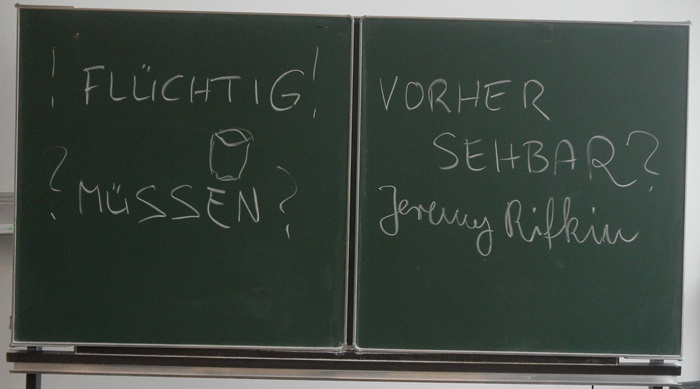 ! FLÜCHTIG!
? MÜSSEN?
VORHER
SEHBAR?
Jeremy Rifkin